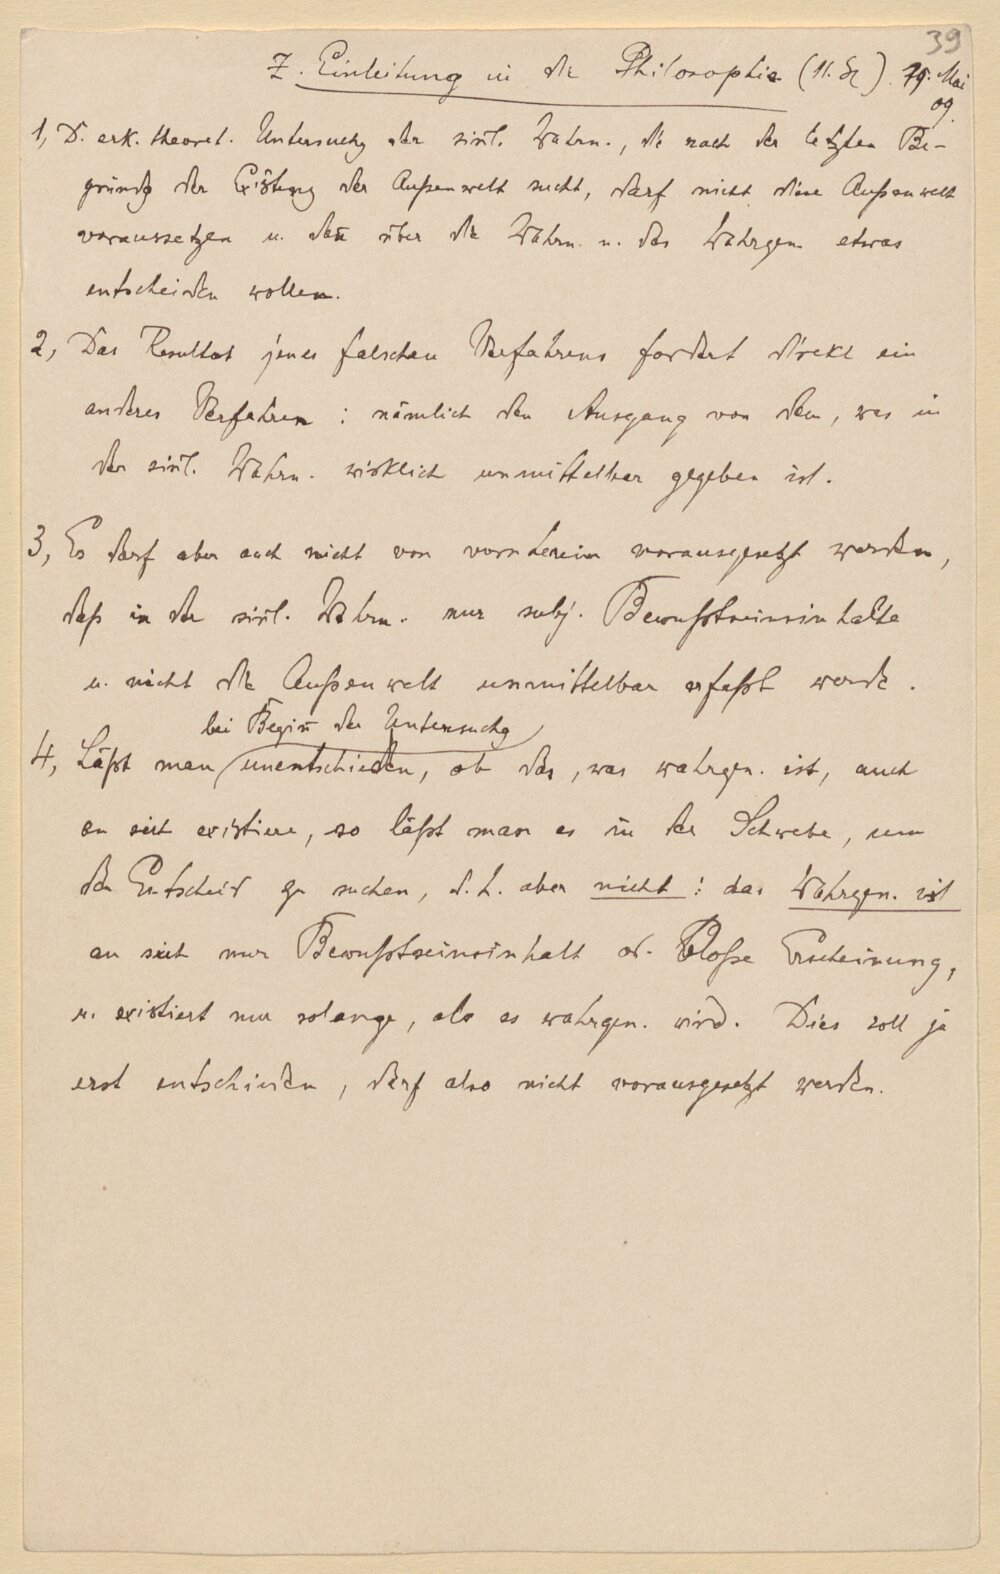 39
Z. Einleitung in die Philosophie (11. St). Mai
09.
1, D. erk. theoret. Untersuchg der siñl. Wahrn., die nach der letzten Be-
gründg der Existenz der Außenwelt sucht, darf nicht diese Außenwelt
voraussetzen u. dañ über die Wahrn. u. das Wahrgen. etwas
entscheiden wollen.
2, Das Resultat jenes falschen Verfahrens fordert direkt ein
anderes Verfahren: nämlich den Ausgang von dem, was in
der siñl. Wahrn. wirklich unmittelbar gegeben ist.
3, Es darf aber auch nicht von vornherein vorausgesetzt werden,
daß in der siñl. Wahrn. nur subj. Bewußtseinsinhalte
u. nicht die Außenwelt unmittelbar erfaßt werde.
bei Begiñ der Untersuchg
4, Läßt man unentschieden, ob das, was wahrgen. ist, auch
an sich existiere, so läßt man es in der Schwebe, um
den Entscheid zu suchen, d.h. aber nicht: das Wahrgen. ist
an sich nur Bewußtseinsinhalt od. bloße Erscheinung,
u. existiert nur solange, als es wahrgen. wird. Dies soll ja
erst entschieden, darf also nicht vorausgesetzt werden.